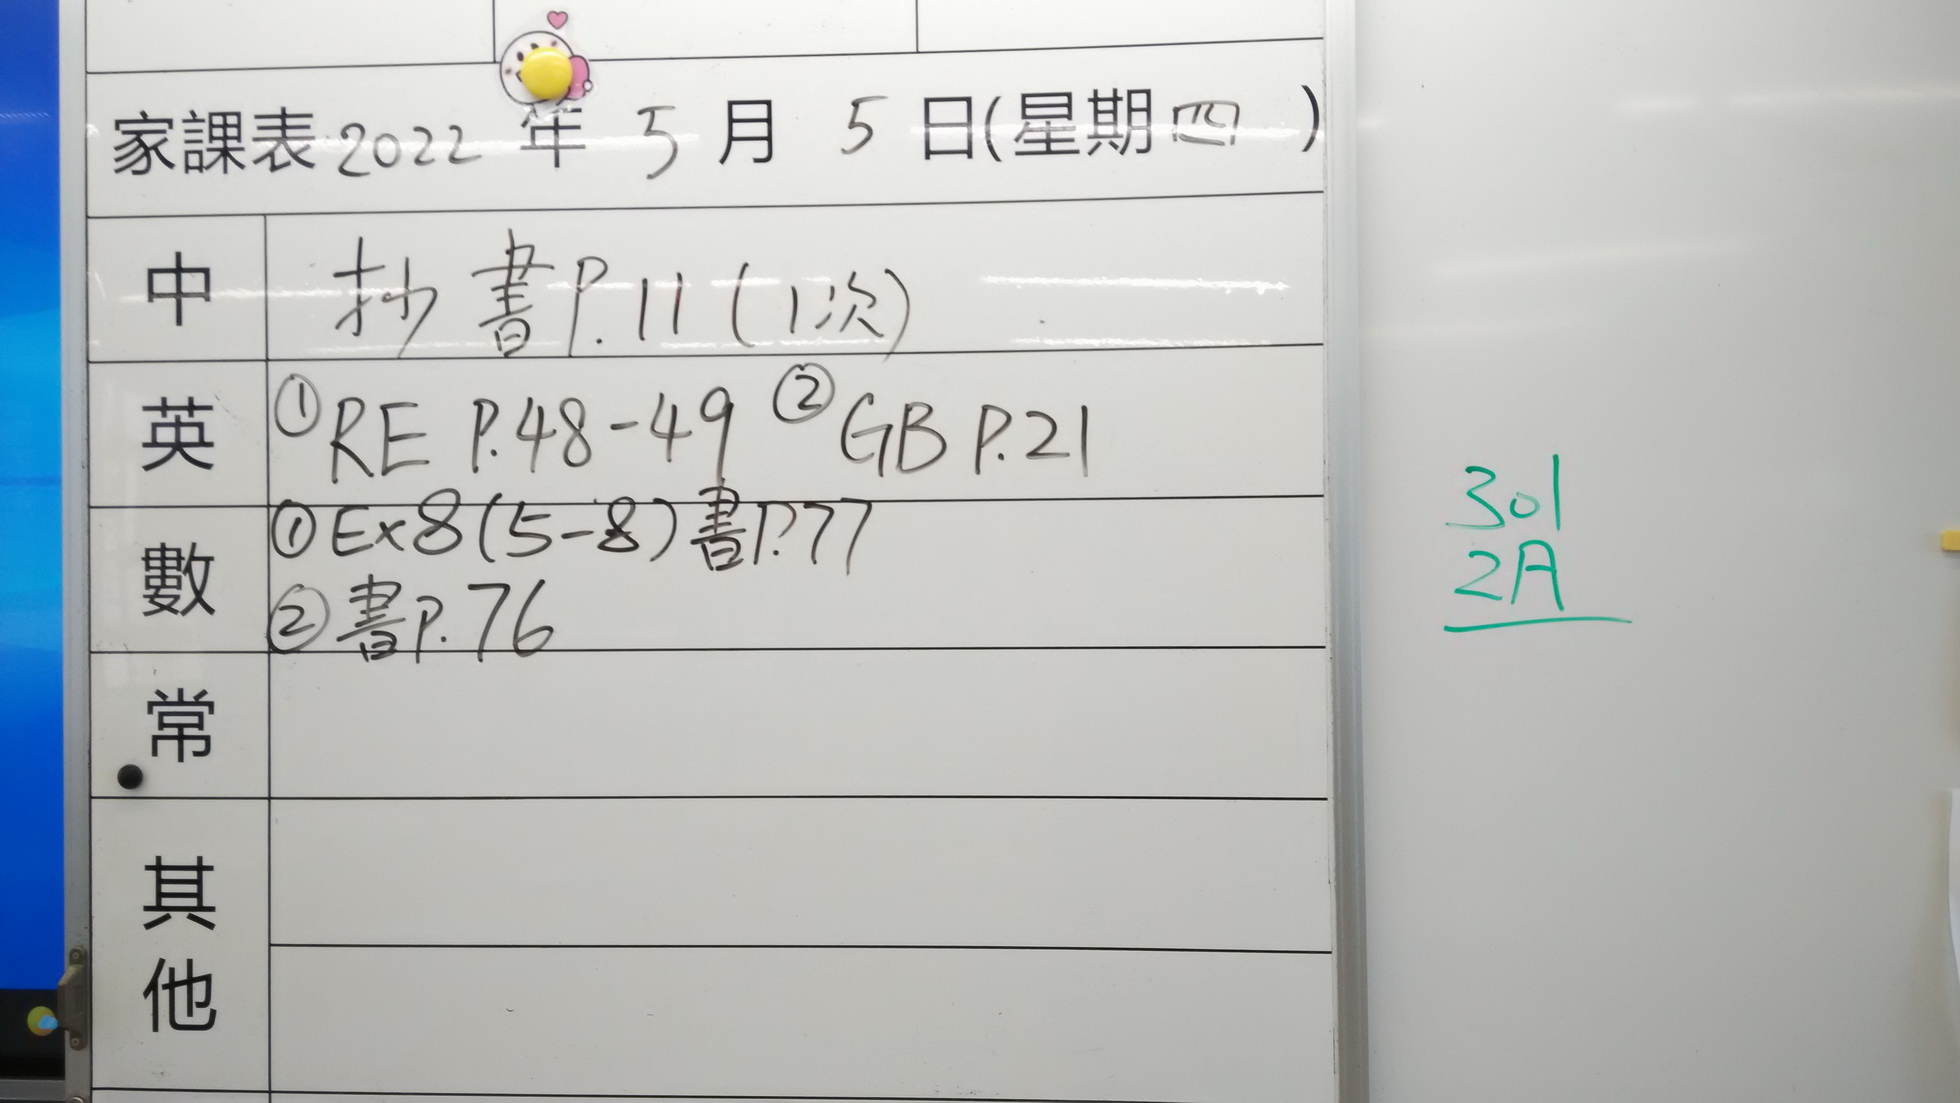 家課表 2022 年 5 月 5 日(星期四)
中 抄書P.11(1次)
英 ①RE P.48-49 ②GB P.21
數 ①Ex8(5-8)書P.77
②書P.76
常
其他
301
2A